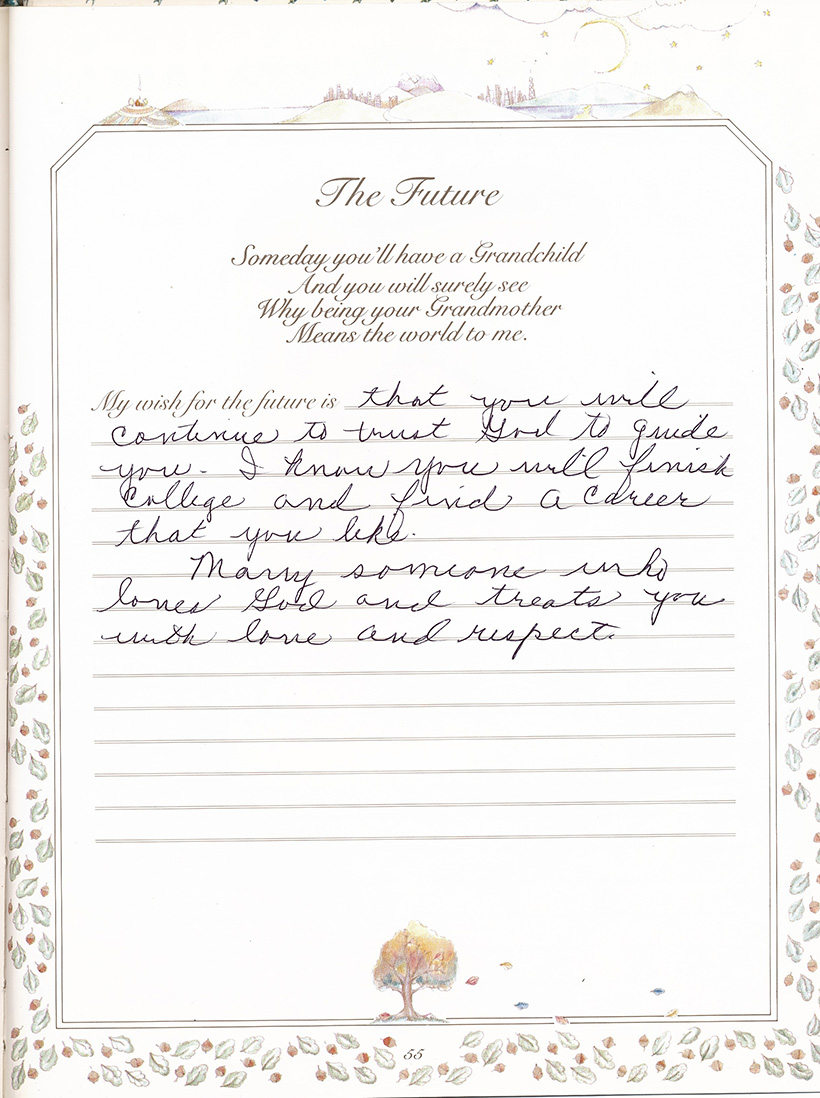 The Future
Someday you'll have a Grandchild
And you will surely see
Why being your Grandmother
Means the world to me.
My wish for the future is that you will
continue to trust God to guide
you. I know you will finish
college and find a career
that you like.
Marry someone who
loves God and treats you
with love and respect.
55